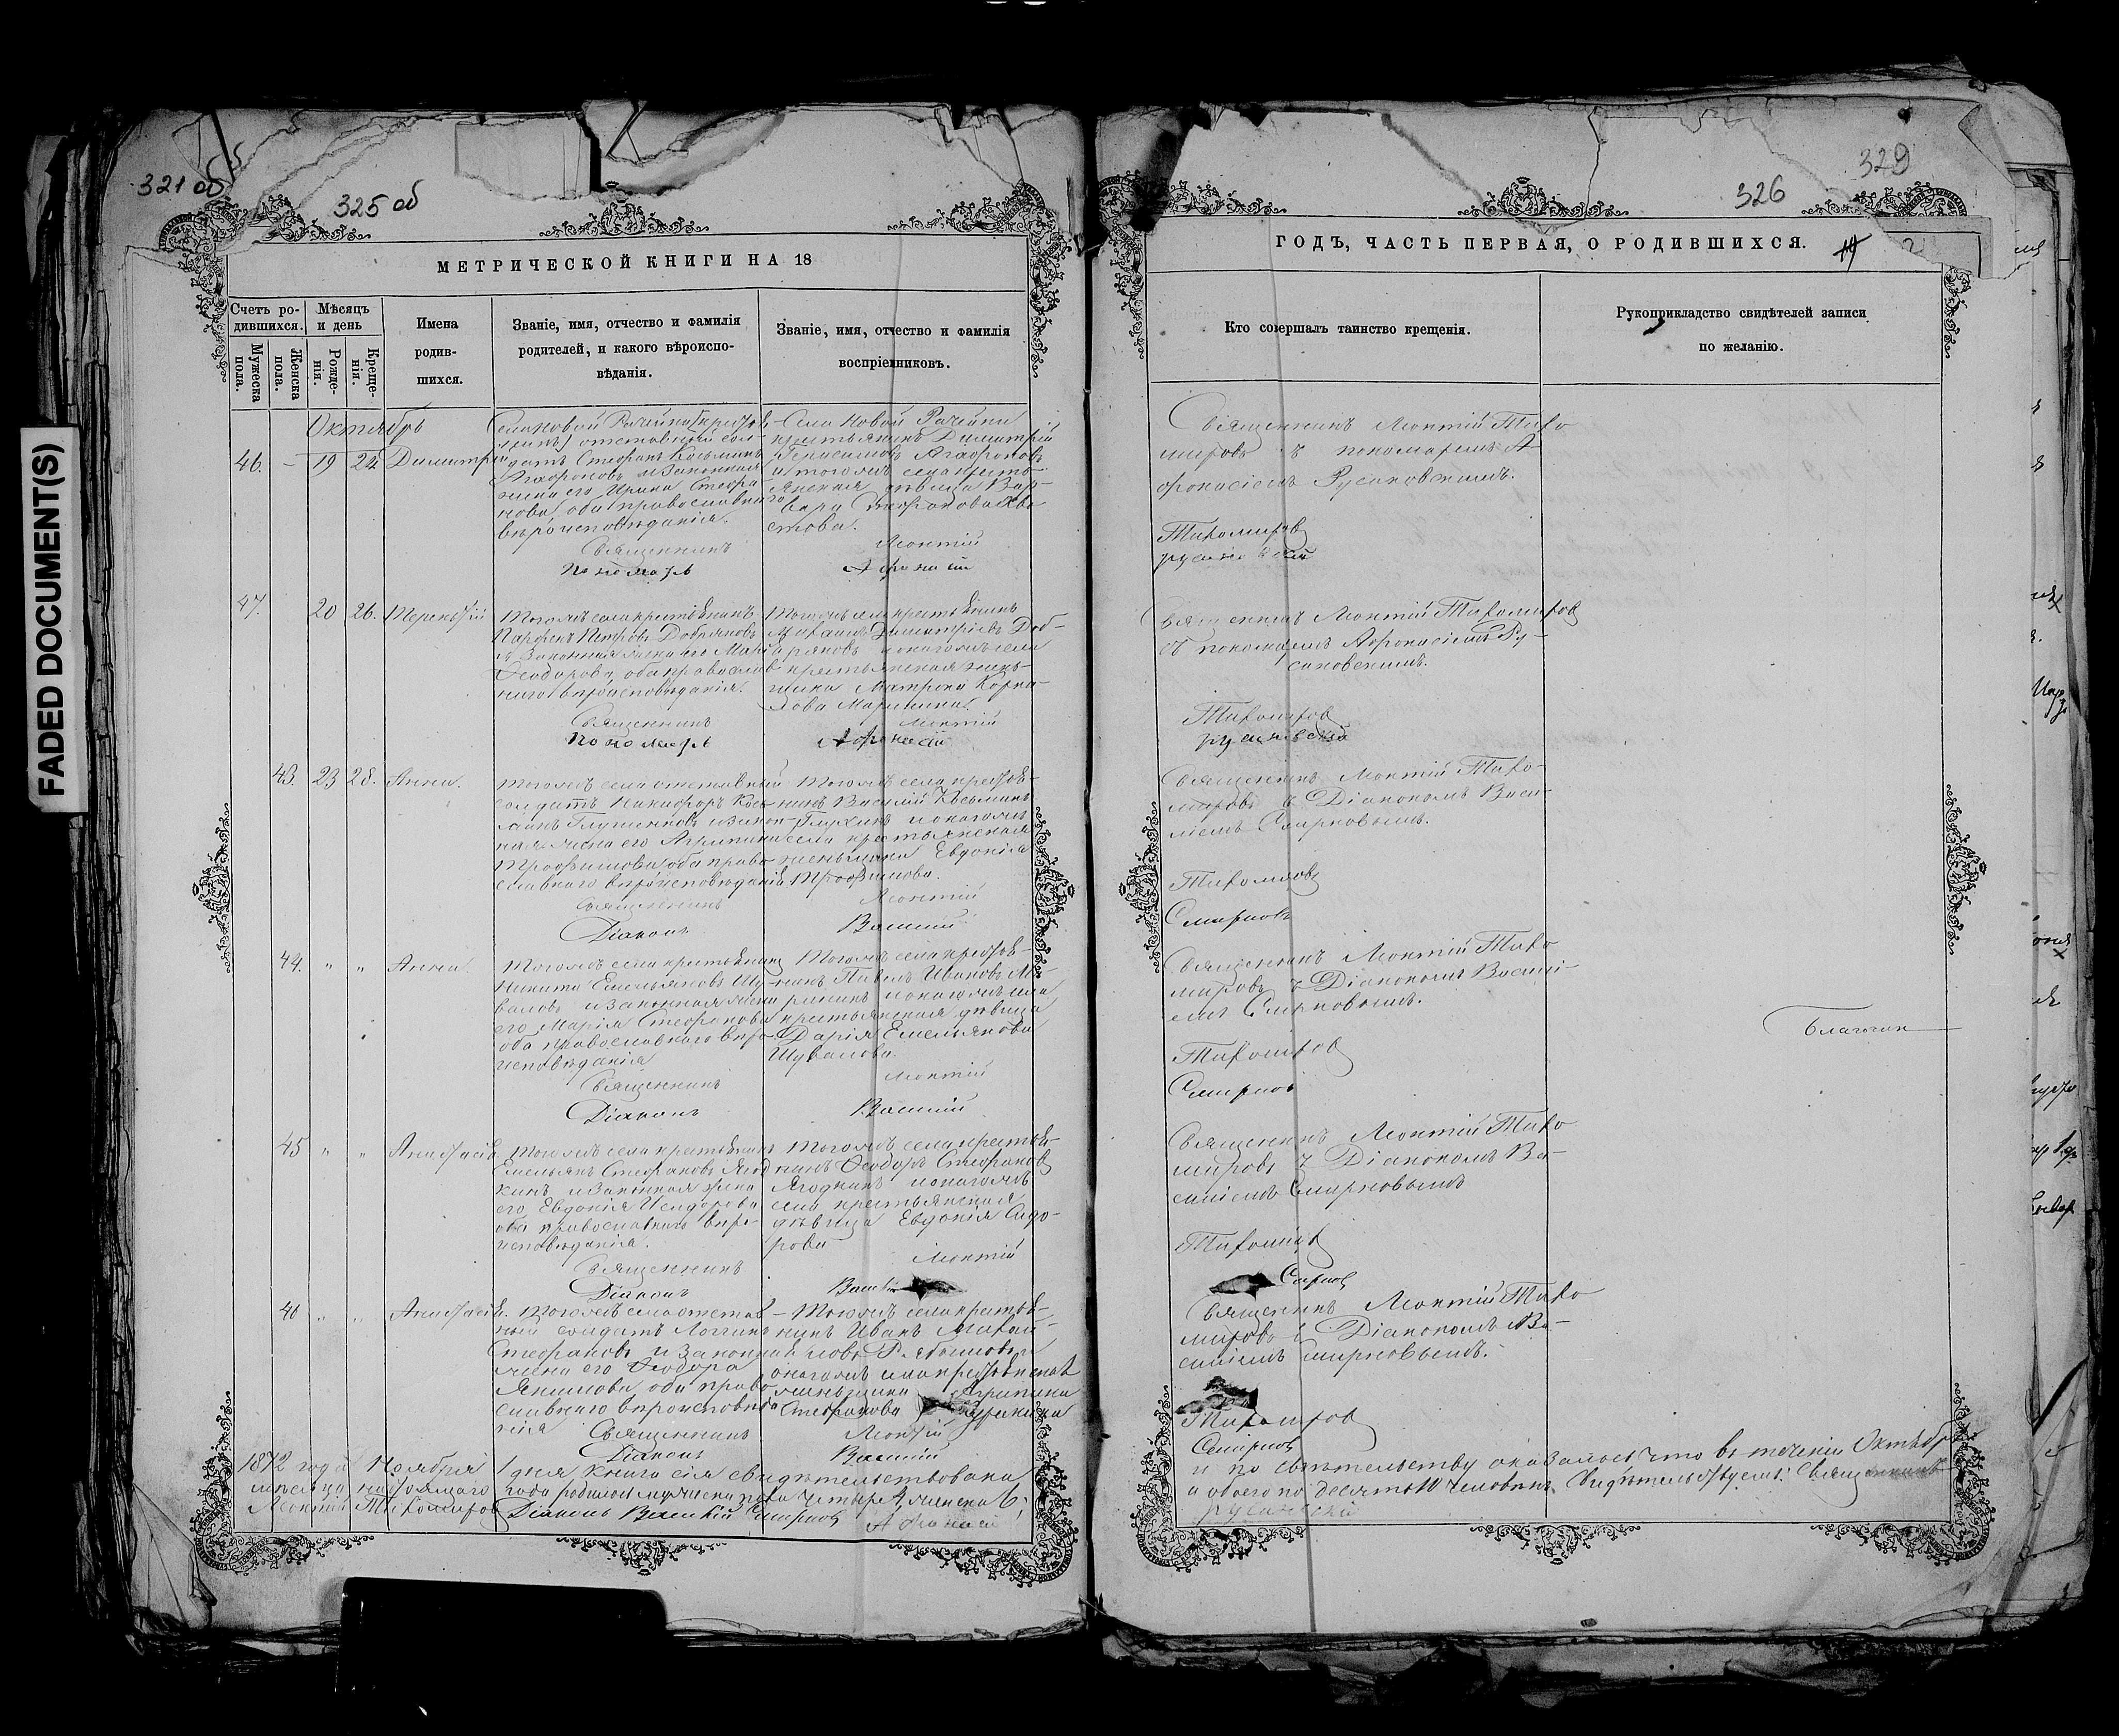 FADED DOCUMENT(S)
321 об
325 об
МЕТРИЧЕСКОЙ КНИГИ НА 18
Счетъ ро-
дившихся.
Мужеска
пола.
Женска
пола.
Мѣсяцъ
и день
Рожде-
нія.
Креще-
нія.
Имена
родив-
шихся.
Званіе, имя, отчество и фамилія
родителей, и какого вѣроиспо-
вѣданія.
Званіе, имя, отчество и фамилія
воспріемниковъ.
Октябрь
46. - 19 24 Димитрій
Села Новой Рачейки
отставный сол-
датъ Стефанъ Козьминъ
Агафоновъ и законная
жена его Ирина Стефа
нова, оба православнаго
вѣроисповѣданія.
Села Новой Рачейки
крестьянинъ Димитрій
Герасимовъ Агафоновъ
и того же села кресть-
янская дѣвица Вар-
вара Стефанова
Священникъ Леонтій
Пономарь Афонасій
47. 20 26. Терентій
Того же села крестьянинъ
Парфенъ Петровъ Добряновъ
и законная жена его Марія
Феодорова, оба православ
наго вѣроисповѣданія.
Того же села крестьянинъ
Михаилъ Димитріевъ Доб-
ряновъ и онаго же села
крестьянская жен-
щина Матрона Корни-
лова Маришина.
Священникъ Леонтій
Пономарь Афонасій
43. 23 28. Анна.
Того же села отставный
солдатъ Никифоръ Козь-
минъ Глушенковъ и закон-
ная жена его Агрипина
Трофимова, оба право-
славнаго вѣроисповѣданія
Того же села крестья-
нинъ Василій Козьминъ
и онаго же
села крестьянская
женщина Евдокія
Трофимова.
Священникъ Леонтій
Діаконъ Василій
44. " " Анна.
Того же села крестьянинъ
Никита Емельяновъ Шу-
валовъ и законная жена
его Марія Стефанова
оба православнаго вѣро-
исповѣданія
Того же села крестья-
нинъ Павелъ Ивановъ
и онаго же села
крестьянская дѣвица
Дарія Емельянова
Шувалова.
Священникъ Леонтій
Діаконъ Василій
45 " " Анастасія.
Того же села крестьянинъ
Емельянъ Стефановъ Ягод
кинъ и законная жена
его Евдокія Исидорова
оба православнаго вѣро-
исповѣданія.
Того же села крестья-
нинъ Феодоръ Стефановъ
Ягодкинъ и онаго же
села крестьянская
дѣвица Евдокія Сидо-
рова
Священникъ Леонтій
Діаконъ
46 " " Анастасія.
Того же села отстав-
ный солдатъ Логгинъ
Стефановъ и законная
жена его Феодора
Якимова, оба право
славнаго вѣроисповѣда
нія
Того же села крестья-
нинъ Иванъ Михаи-
ловъ
онаго же села крестьянская
женщина Агрипина
Стефанова
Священникъ Леонтій
Діаконъ Василій
1872 года Ноября 1 дня, книга сія свидѣтельствована
мѣсяца настоящаго года родилось мужеска пола четыре 4, женска 6;
Леонтій Тихомировъ Діаконъ Василій Смирновъ Афонасій
329
326
ГОДЪ, ЧАСТЬ ПЕРВАЯ, О РОДИВШИХСЯ.
Кто совершалъ таинство крещенія.
Рукоприкладство свидѣтелей записи
по желанію.
Священникъ Леонтій Тихо
мировъ съ пономаремъ А-
фонасіемъ Русановскимъ.
Тихомировъ
Русановскій
Священникъ Леонтій Тихомировъ
съ пономаремъ Афонасіемъ Ру-
сановскимъ.
Тихомировъ
Русановскій
Священникъ Леонтій Тихо-
мировъ съ Діакономъ Васи-
ліемъ Смирновымъ.
Тихомировъ
Смирновъ
Священникъ Леонтій Тихо
мировъ съ Діакономъ Васілі-
емъ Смирновымъ.
Тихомировъ
Смирновъ
Благочин
Священникъ Леонтій Тихо
мировъ съ Діакономъ Ва-
силіемъ Смирновымъ
Тихомировъ
Смирновъ
Священникъ Леонтій Тихо
мировъ съ Діакономъ Ва-
силіемъ Смирновымъ.
Тихомировъ
Смирновъ
и по свидѣтельству оказалось что въ теченіи Октября
а обоего пола десять 10 человѣкъ. Свидѣтельствуемъ: Священникъ
Русановскій